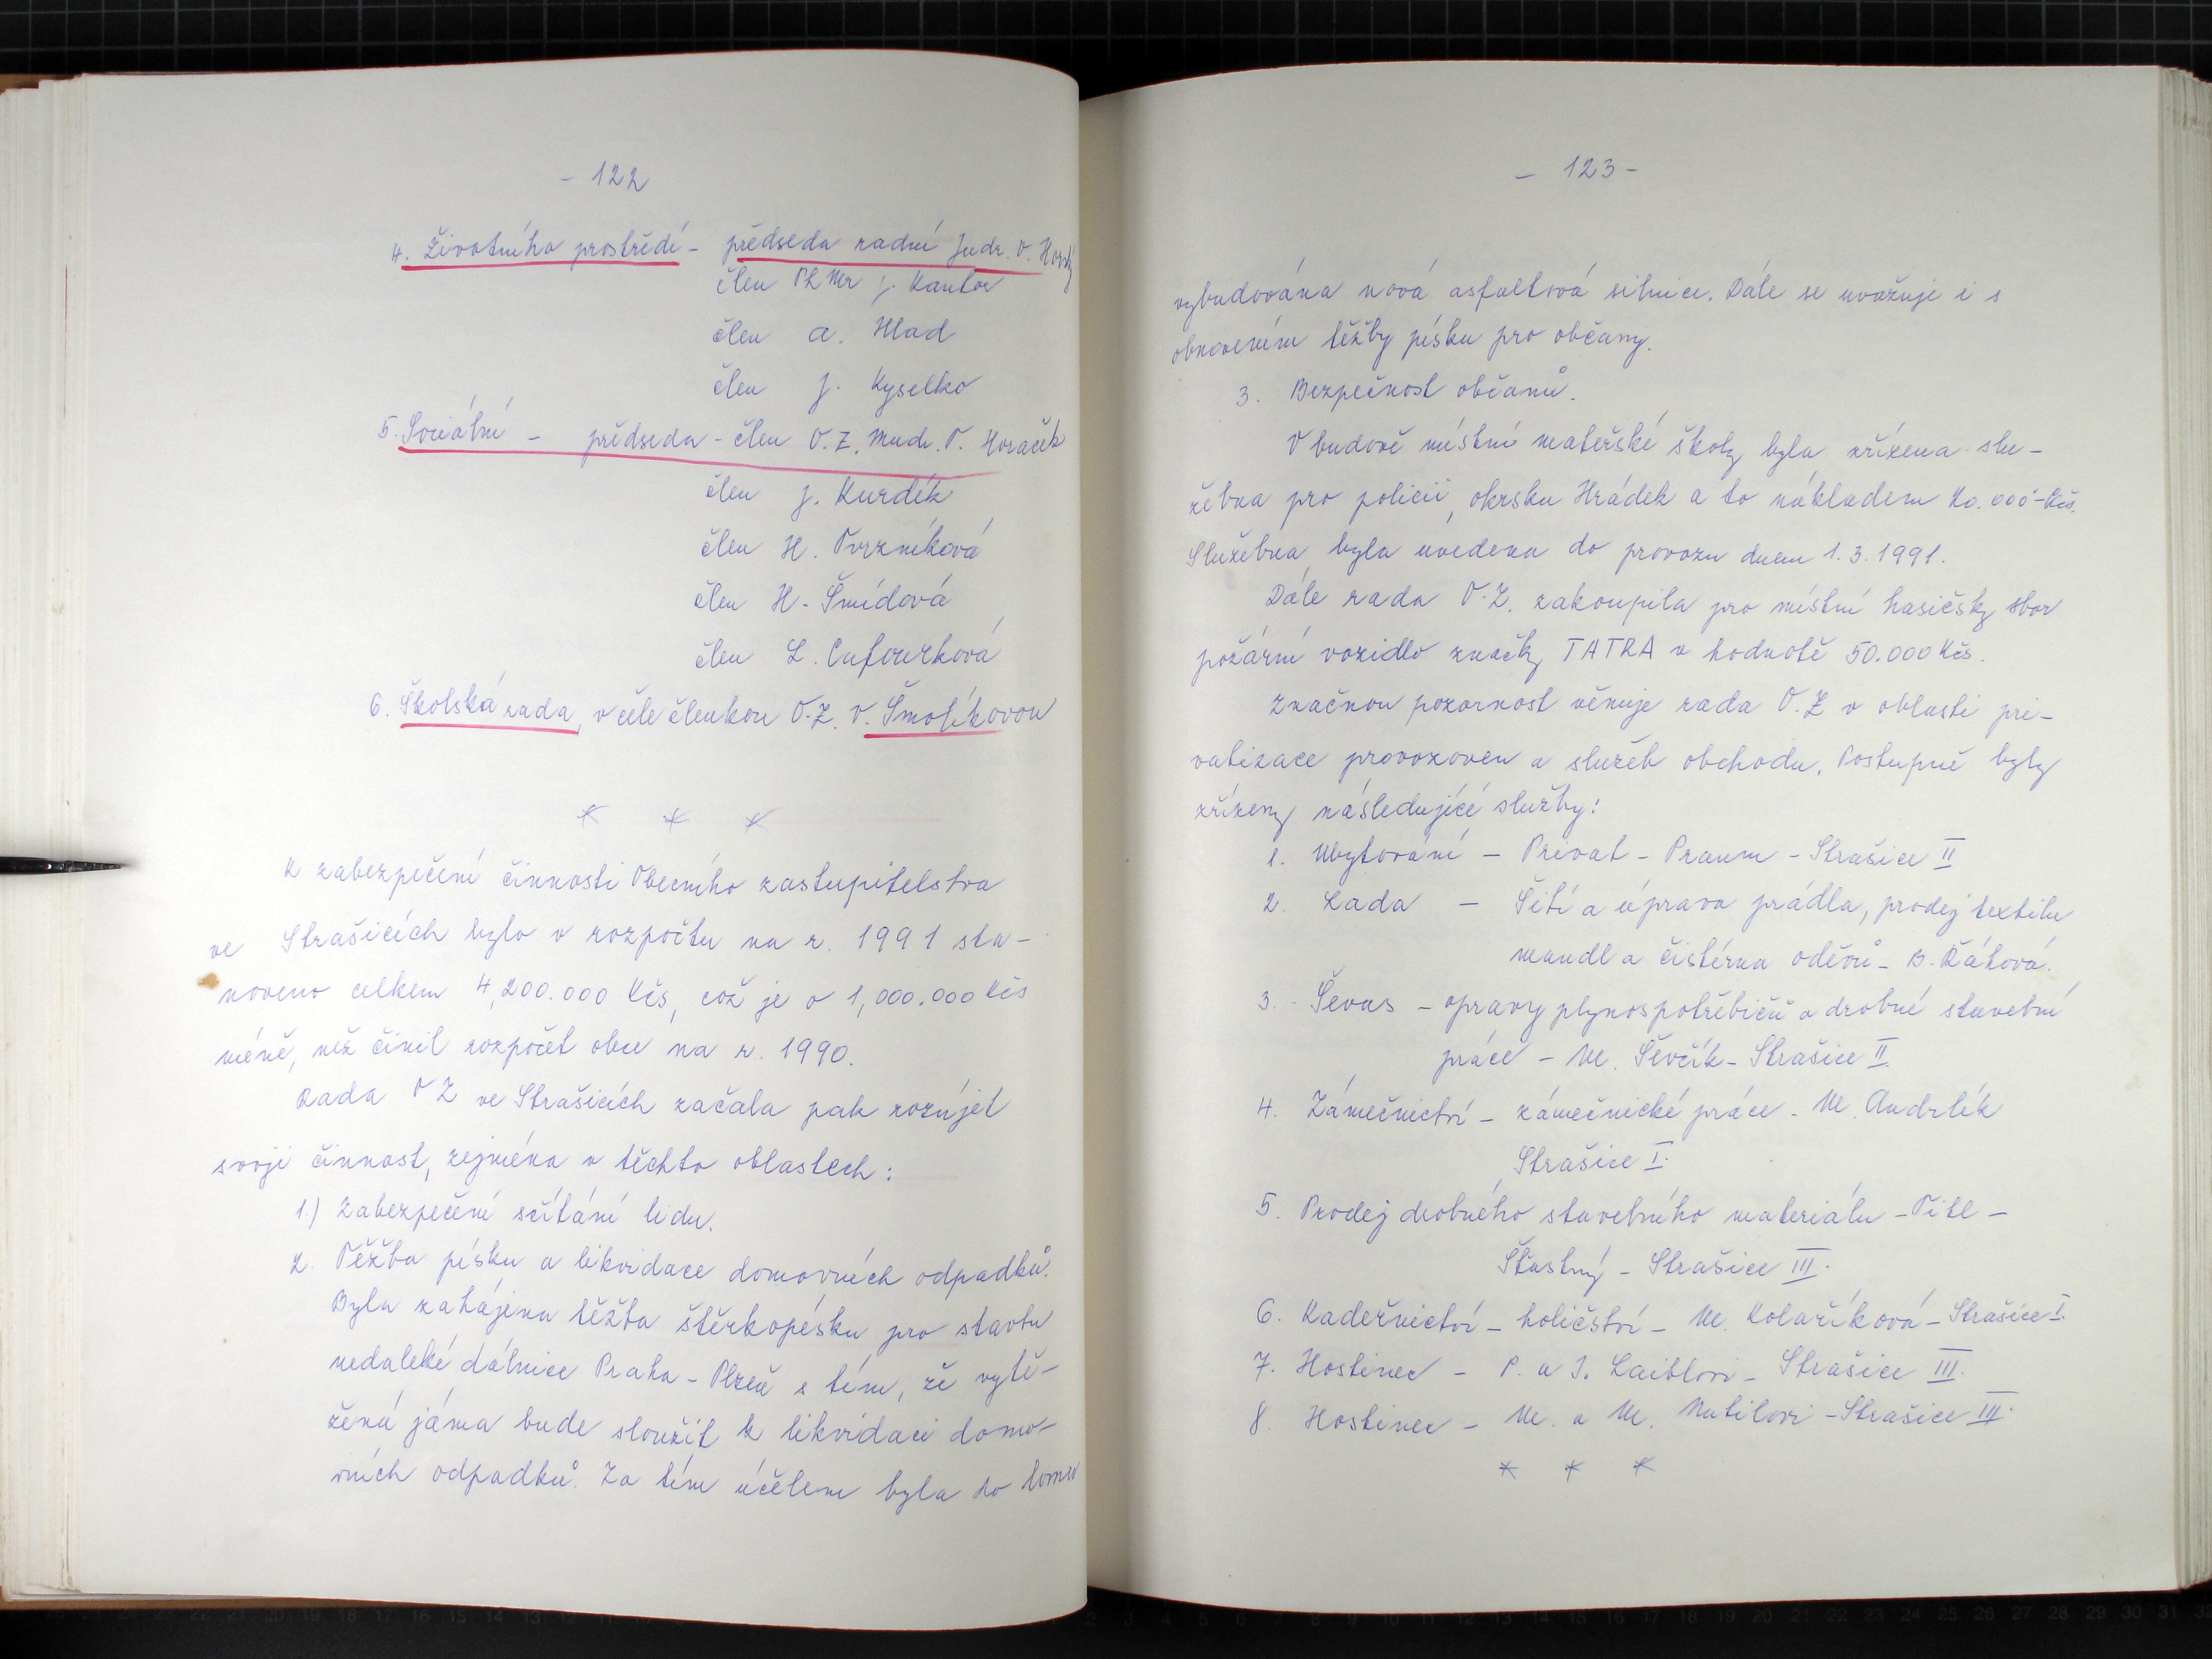 - 122
4. Životního prostředí - předseda radní Judr. V. Horký
člen PhMr J. Kantor
člen A. Hlad
člen J. Kyselko
5. Sociální - předseda - člen O.Z. Mudr. T. Horaček
člen J. Kurdík
člen H. Tvrzníková
člen H. Šmídová
člen L. Cafourková
6. Školská rada, v čele členkou O.Z. V. Šmolíkovou
* * *
K zabezpečení činnosti Obecního zastupitelstva
ve Strašicích bylo v rozpočtu na r. 1991 sta-
noveno celkem 4,200.000 Kčs, což je o 1,000.000 Kčs
méně, než činil rozpočet obce na r. 1990.
Rada OZ ve Strašicích začala pak rozvíjet
svoji činnost, zejména v těchto oblastech:
1.) Zabezpečení sčítání lidu.
2. Těžba písku a likvidace domovních odpadků.
Byla zahájena těžba štěrkopísku pro stavbu
nedaleké dálnice Praha - Plzeň s tím, že vytě-
žená jáma bude sloužit k likvidaci domo-
vních odpadků. Za tím účelem byla do lomu
- 123 -
vybudována nová asfaltová silnice. Dále se uvažuje i s
obnovením těžby písku pro občany.
3. Bezpečnost občanů.
V budově místní mateřské školy byla zřízena slu-
žebna pro policii, okrsku Hrádek a to nákladem 20.000 - Kčs.
Služebna byla uvedena do provozu dnem 1.3.1991.
Dále rada O.Z. zakoupila pro místní hasičský sbor
požární vozidlo značky TATRA v hodnotě 50.000 Kčs.
Značnou pozornost věnuje rada O.Z v oblasti pri-
vatizace provozoven a služeb obchodu. Postupně byly
zřízeny následující služby:
1. Ubytování - Privat - Praum - Strašice II
2. Lada - Šití a úprava prádla, prodej textilu
mandl a čistírna oděvů - B. Řáhová.
3. Ševas - opravy plynospotřebičů a drobné stavební
práce - M. Ševčík - Strašice II.
4. Zámečnictví - zámečnické práce - M. Andrlík
Strašice I.
5. Prodej drobného stavebního materiálu - Pitl -
Šťastný - Strašice III.
6. Kadeřnictví - holičství - M. Kolaříková - Strašice I.
7. Hostinec - P. a I. Laiblovi - Strašice III.
8. Hostinec - M. a M. Matilovi - Strašice III.
* * *